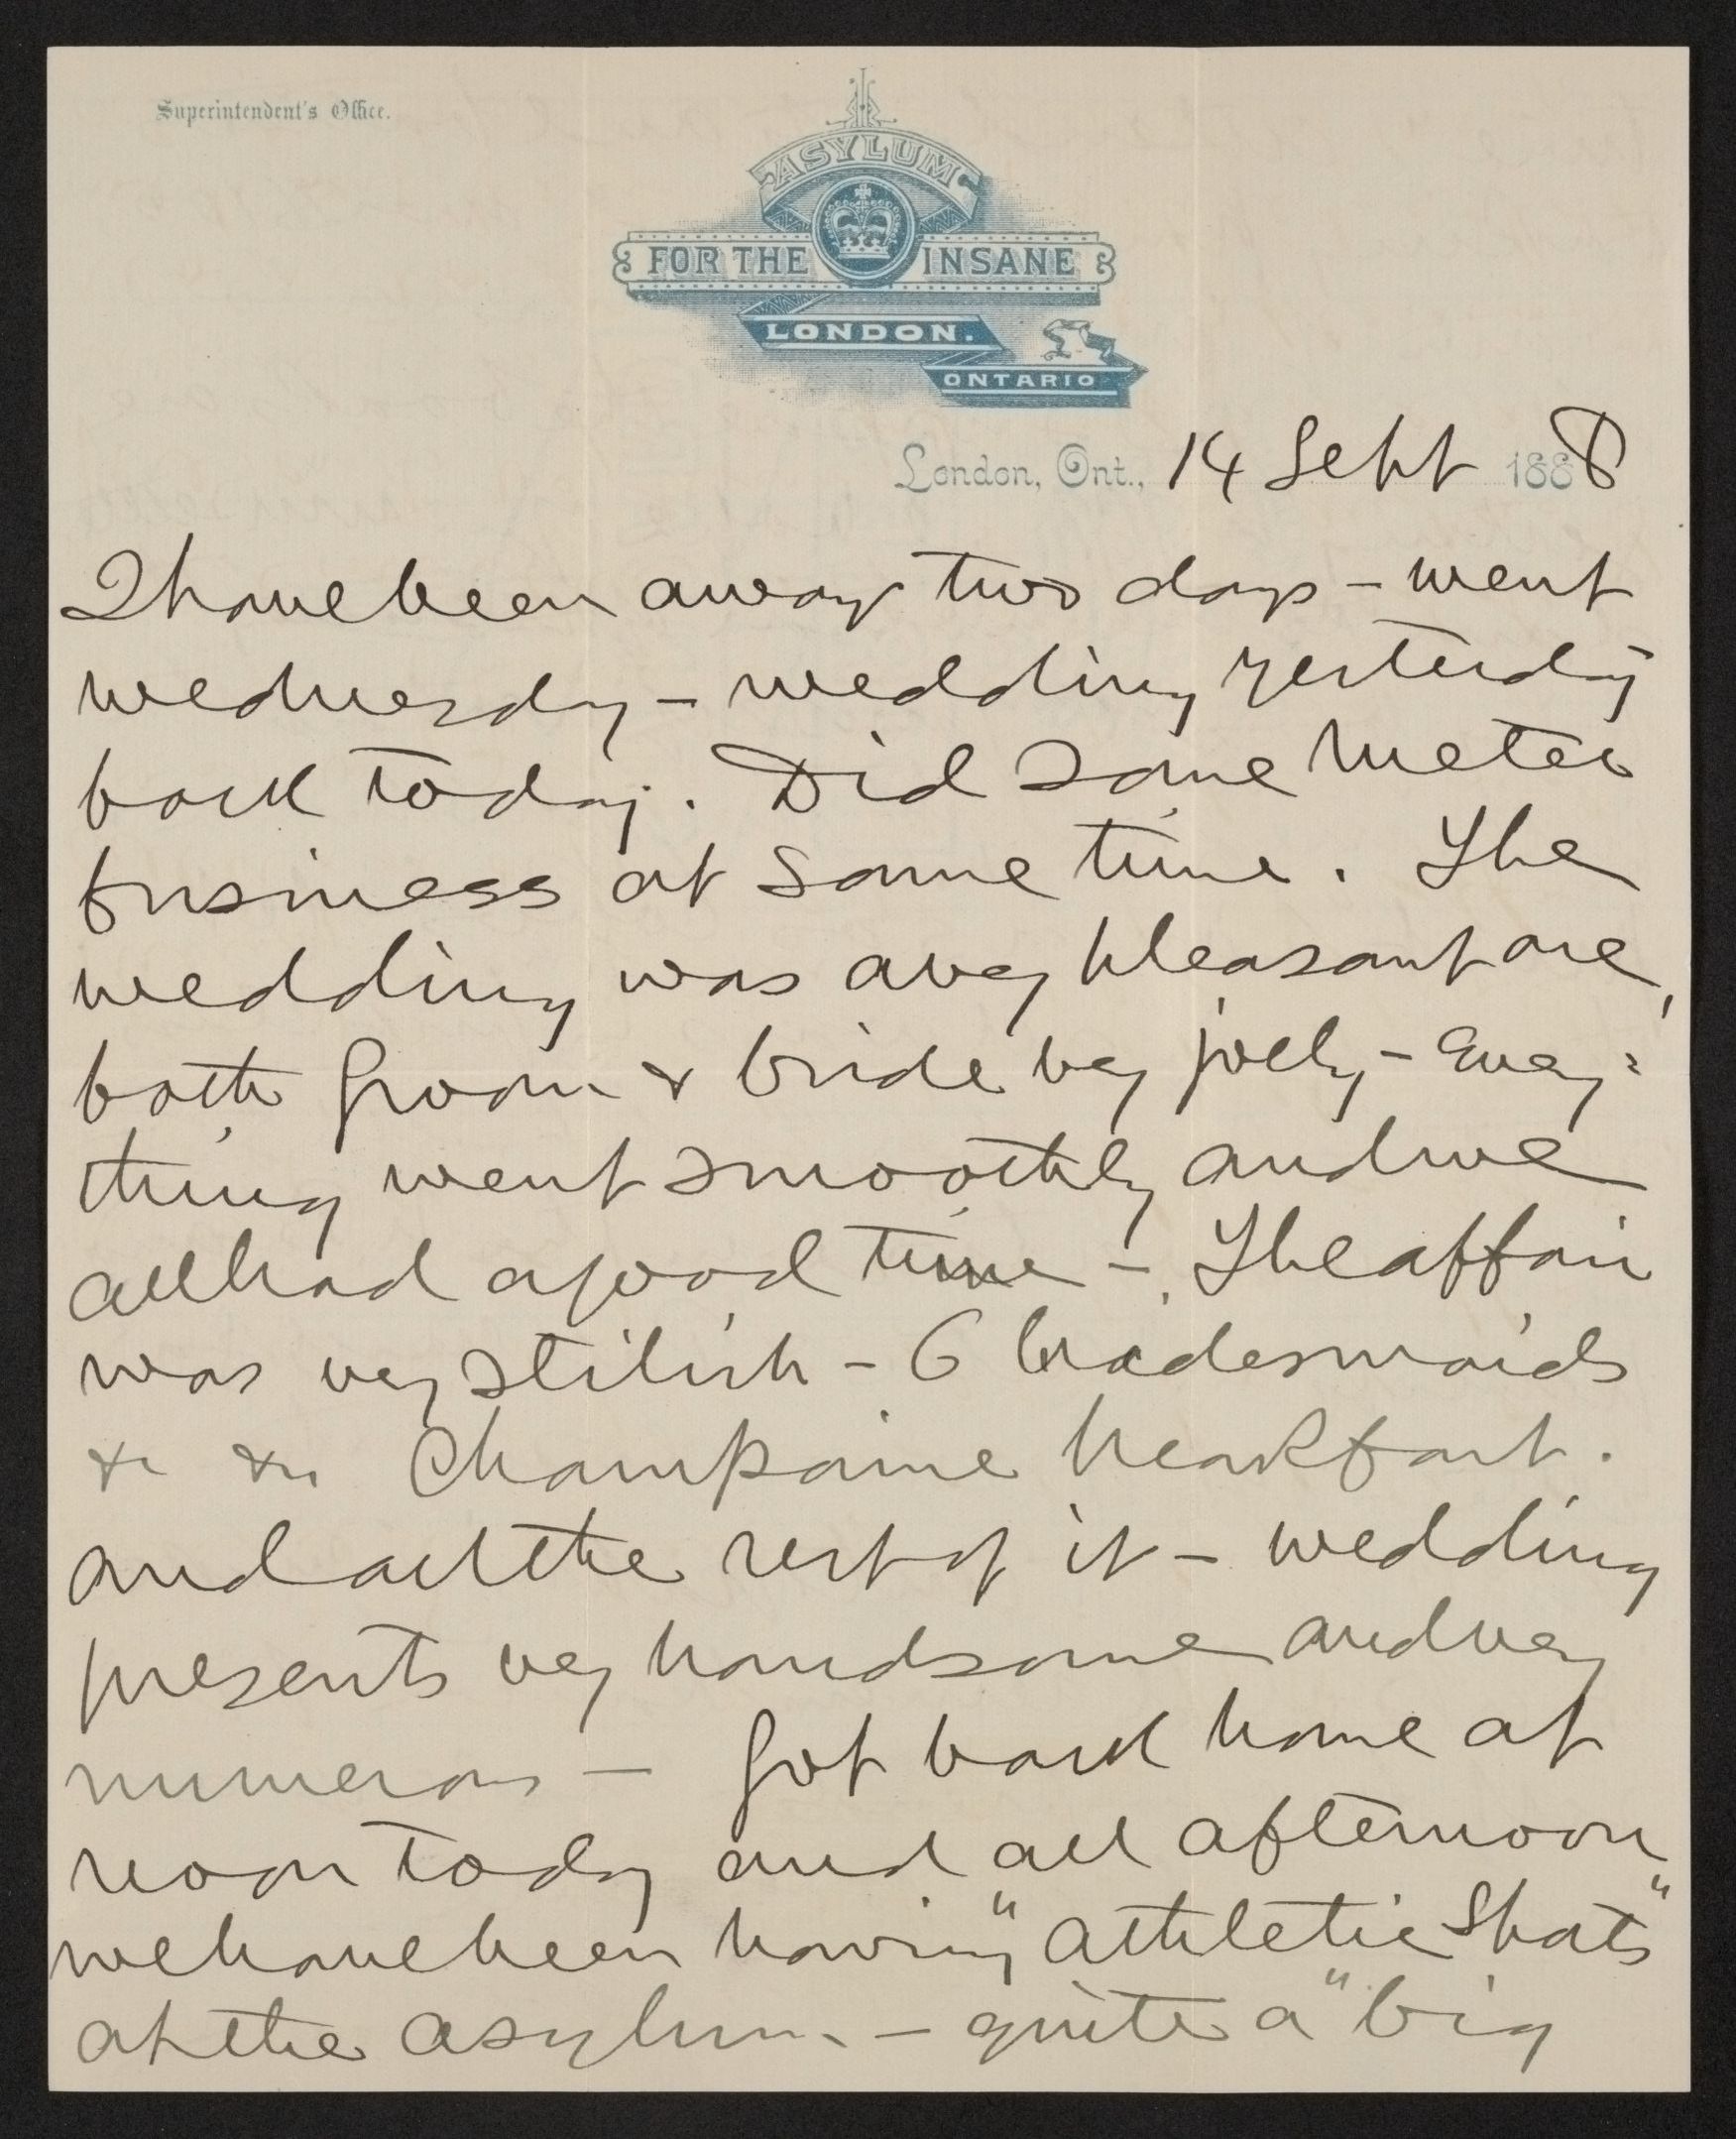 Superintendent's Office.
ASYLUM
FOR THE INSANE
LONDON.
ONTARIO
London, Ont., 14 Sept 1888
I have been away two days – went
wednesday – wedding yesterday
back today. Did some meter
business at same time. The
wedding was a very pleasant one,
both groom & bride very jolly – Every=
thing went smoothly and we
all had a good time – The affair
was very stilish – 6 bridesmaids
&c &c Champaine breakfast.
and all the rest of it – wedding
presents very handsome and very
numerous – Got back home at
noon today and all afternoon
we have been having "athletic Spots"
at the asylum – quite a "big